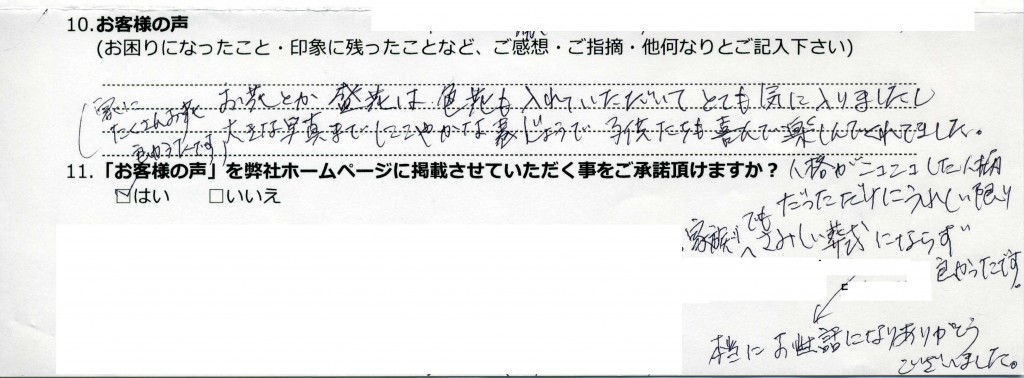 10.お客様の声
(お困りになったこと・印象に残ったことなど、ご感想・ご指摘・他何なりとご記入下さい)
お花とか 盛花は 色花も 入れていただいて とても 気に入りましたし
大きな写真まで にこやかな 表じょうで 子供たちも 喜んで 楽しんでくれてました。
(家に
たくさんお花
良かったです)
11.「お客様の声」を弊社ホームページに掲載させていただく事をご承諾頂けますか?
☑はい □いいえ
人格がニコニコした人柄
だっただけにうれしい限り
家族
でも
さみしい葬式にならず
良かったです。
本当に お世話になりありがとう
ございました。